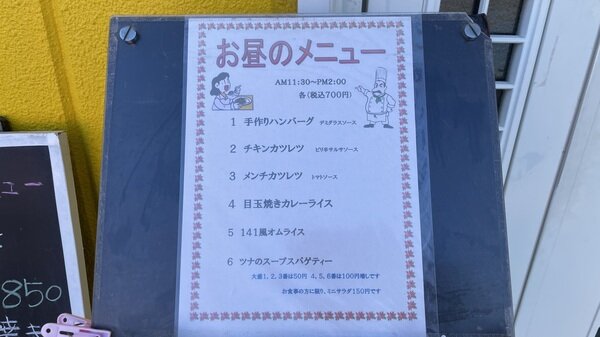 お昼のメニュー
AM11:30～PM2:00
各(税込700円)
1 手作りハンバーグ デミグラスソース
2 チキンカツレツ ピリ辛サルサソース
3 メンチカツレツ トマトソース
4 目玉焼きカレーライス
5 141風オムライス
6 ツナのスープスパゲティー
大盛1、2、3番は50円 4、5、6番は100円増しです
お食事の方に限り、ミニサラダ150円です
ニュー
850